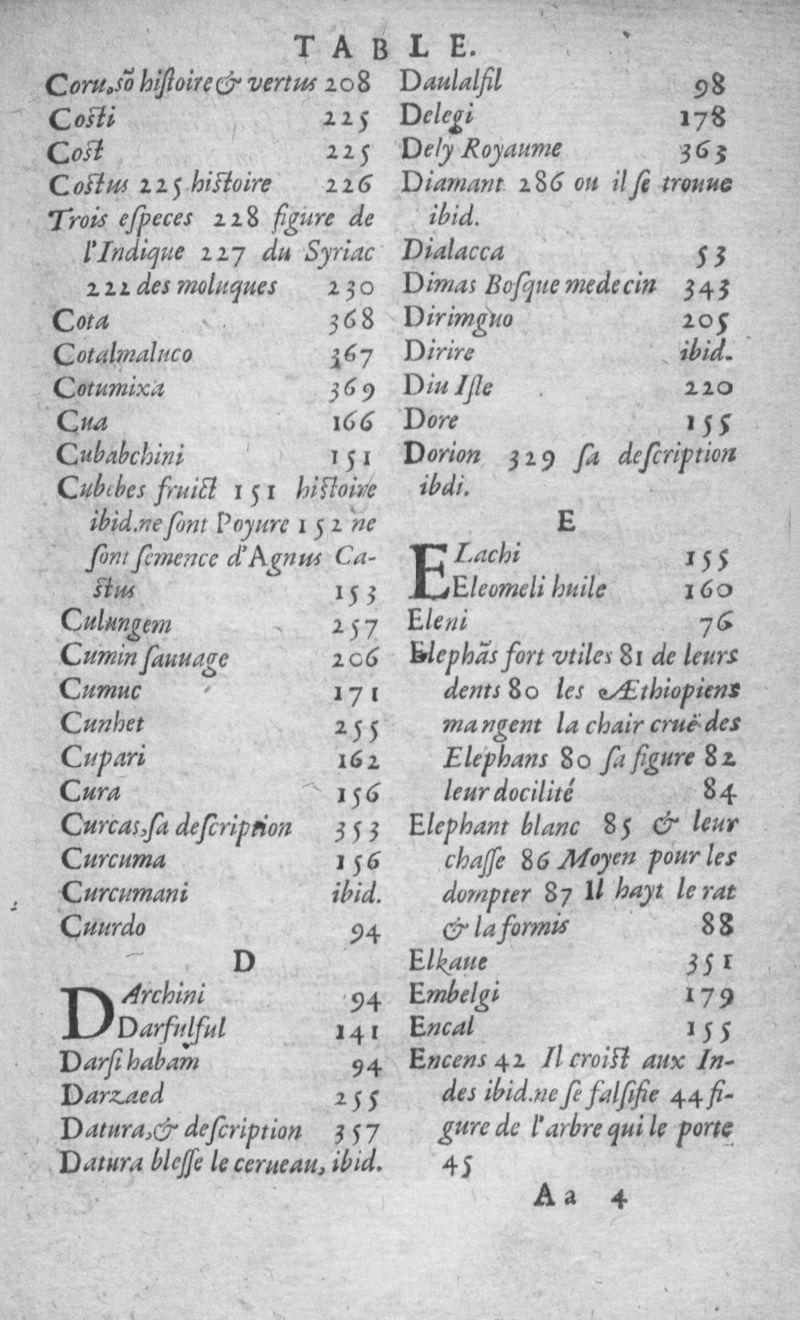 TABLE.
Coru, sõ hiſtoire & vertus 208
Coſti 225
Coſt 225
Coſtus 225 hiſtoire 226
Trois eſpeces 228 figure de
l'Indique 227 du Syriac
222 des moluques 230
Cota 368
Cotalmaluco 367
Cotumixa 369
Cua 166
Cubabchini 151
Cubebes fruict 151 hiſtoire
ibid. ne ſont Poyure 152 ne
ſont ſemence d'Agnus Ca-
ſtus 153
Culungem 257
Cumin ſauuage 206
Cumuc 171
Cunhet 255
Cupari 162
Cura 156
Curcas, ſa deſcription 353
Curcuma 156
Curcumani ibid.
Cuurdo 94
D
DArchini 94
Darfulful 141
Darſi habam 94
Darzaed 255
Datura, & deſcription 357
Datura bleſſe le cerueau, ibid.
Daulalfil 98
Delegi 178
Dely Royaume 363
Diamant 286 ou il ſe trouue
ibid.
Dialacca 53
Dimas Boſque medecin 343
Dirimguo 205
Dirire ibid.
Diu Iſle 220
Dore 155
Dorion 329 ſa deſcription
ibdi.
E
ELachi 155
Eleomeli huile 160
Eleni 76
Elephãs fort vtiles 81 de leurs
dents 80 les Æthiopiens
mangent la chair cruë des
Elephans 80 ſa figure 82
leur docilité 84
Elephant blanc 85 & leur
chaſſe 86 Moyen pour les
dompter 87 Il hayt le rat
& la formis 88
Elkaue 351
Embelgi 179
Encal 155
Encens 42 Il croiſt aux In-
des ibid. ne ſe falſifie 44 fi-
gure de l'arbre qui le porte
45
Aa 4